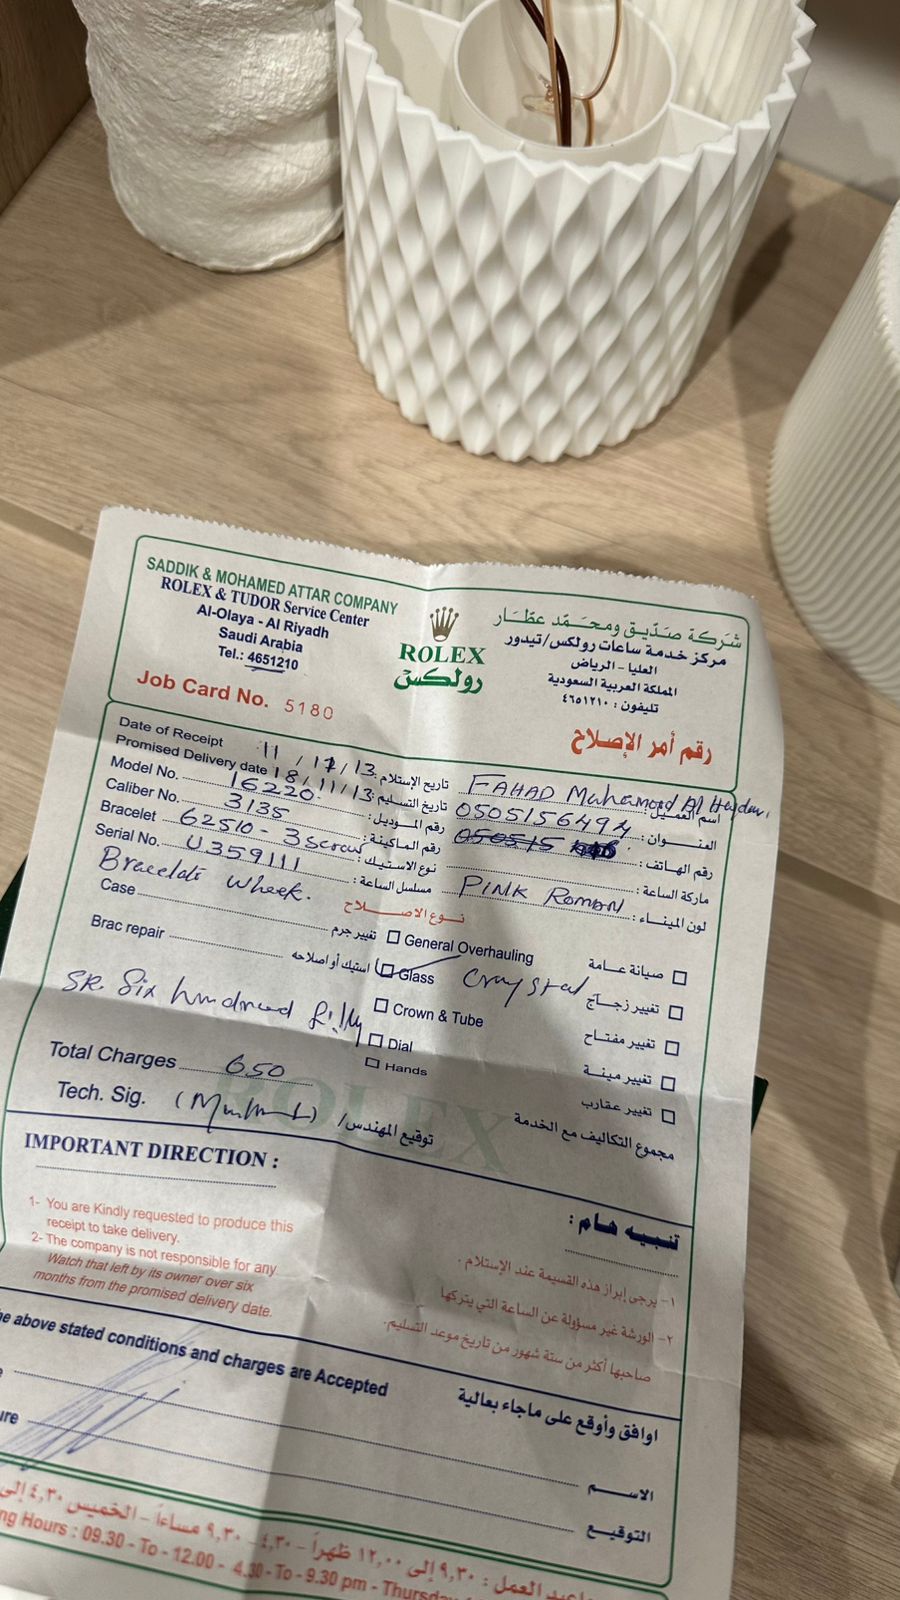 SADDIK & MOHAMED ATTAR COMPANY
ROLEX & TUDOR Service Center
Al-Olaya - Al Riyadh
Saudi Arabia
Tel.: 4651210
ROLEX
رولكس
شركة صدّيق ومحمّد عطّار
مركز خدمة ساعات رولكس/تيدور
العليا - الرياض
المملكة العربية السعودية
تليفون : ٤٦٥١٢١٠
Job Card No. 5180
رقم أمر الإصلاح
Date of Receipt 11 / 11 / 13 تاريخ الإستلام:
Promised Delivery date 18/11/13 تاريخ التسليم:
Model No. 16220 رقم الموديل:
Caliber No. 3135 رقم الماكينة:
Bracelet 62510 - 3 نوع الاستيك:
Serial No. U359111 مسلسل الساعة:
FAHAD اسم العميل:
0505156494 العنوان:
رقم الهاتف:
ماركة الساعة:
PINK ROMAN لون الميناء:
نوع الاصلاح
Case تغيير جرم
Brac repair استيك أو اصلاحه
General Overhauling صيانة عامة
Glass Crystal تغيير زجاج
Crown & Tube تغيير مفتاح
Dial تغيير مينة
Hands تغيير عقارب
SR. Six hundred fifty
Total Charges 650 مجموع التكاليف مع الخدمة
Tech. Sig. توقيع المهندس/
ROLEX
IMPORTANT DIRECTION :
1- You are Kindly requested to produce this
receipt to take delivery.
2- The company is not responsible for any
Watch that left by its owner over six
months from the promised delivery date.
تنبيه هام :
١- يرجى إبراز هذه القسيمة عند الإستلام .
٢- الورشة غير مسؤولة عن الساعة التي يتركها
صاحبها أكثر من ستة شهور من تاريخ موعد التسليم.
above stated conditions and charges are Accepted
اوافق وأوقع على ماجاء بعالية
الاسم
التوقيع
العمل : ٩,٣٠ إلى ١٢,٠٠ ظهراً - ٤,٣٠ - ٩,٣٠ مساءاً - الخميس ٤,٣٠ إلى
Hours : 09.30 - To - 12.00 - 4.30 - To - 9.30 pm - Thursday